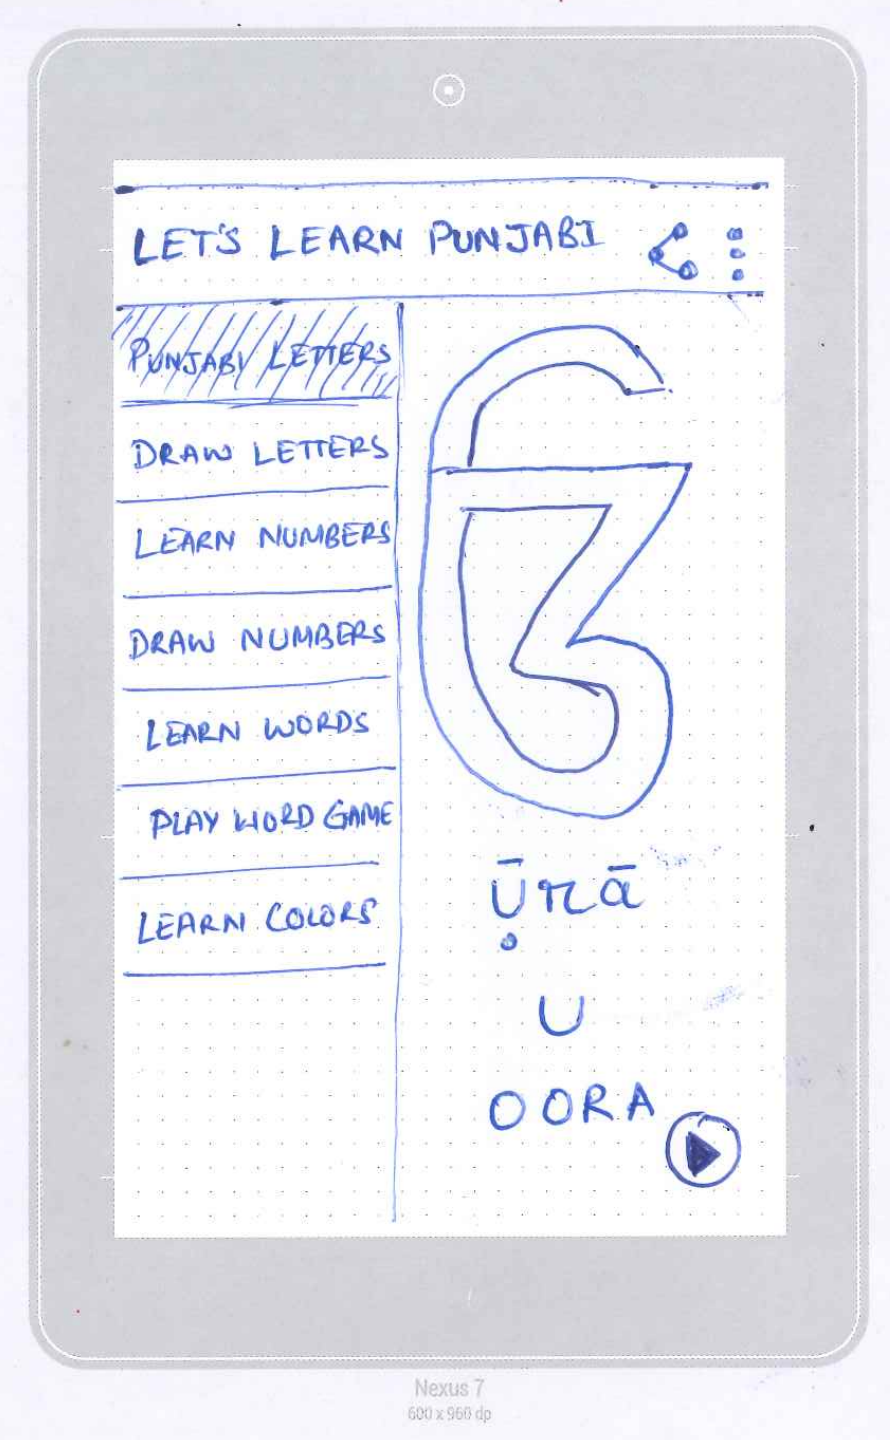 LET'S LEARN PUNJABI
PUNJABI LETTERS
DRAW LETTERS
LEARN NUMBERS
DRAW NUMBERS
LEARN WORDS
PLAY WORD GAME
LEARN COLORS
ੳ
Ụ̄ṛā
U
OORA
Nexus 7
600 x 960 dp